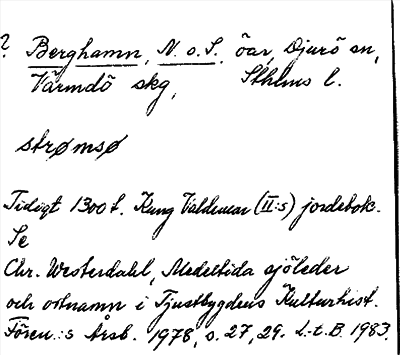 ? Berghamn, N. o. S. öar, Djurö sn,
Värmdö skg, Sthlms l.
strømsø
Tidigt 1300 t. Kung Valdemar (II:s) jordebok.
Se
Chr. Westerdahl, Medeltida sjöleder
och ortnamn i Tjustbygdens Kulturhist.
Fören.:s Årsb. 1978, s. 27, 29. L.t.B. 1983.